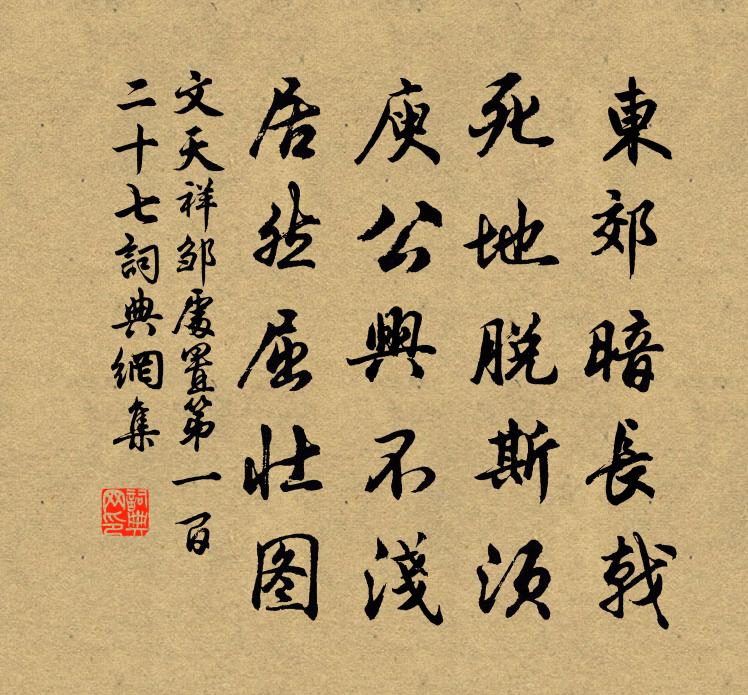 東郊暗長戟
死地脱斯須
庾公興不淺
居然屈壮图
文天祥邹處置第一百
二十七詞典網集
詞典网印